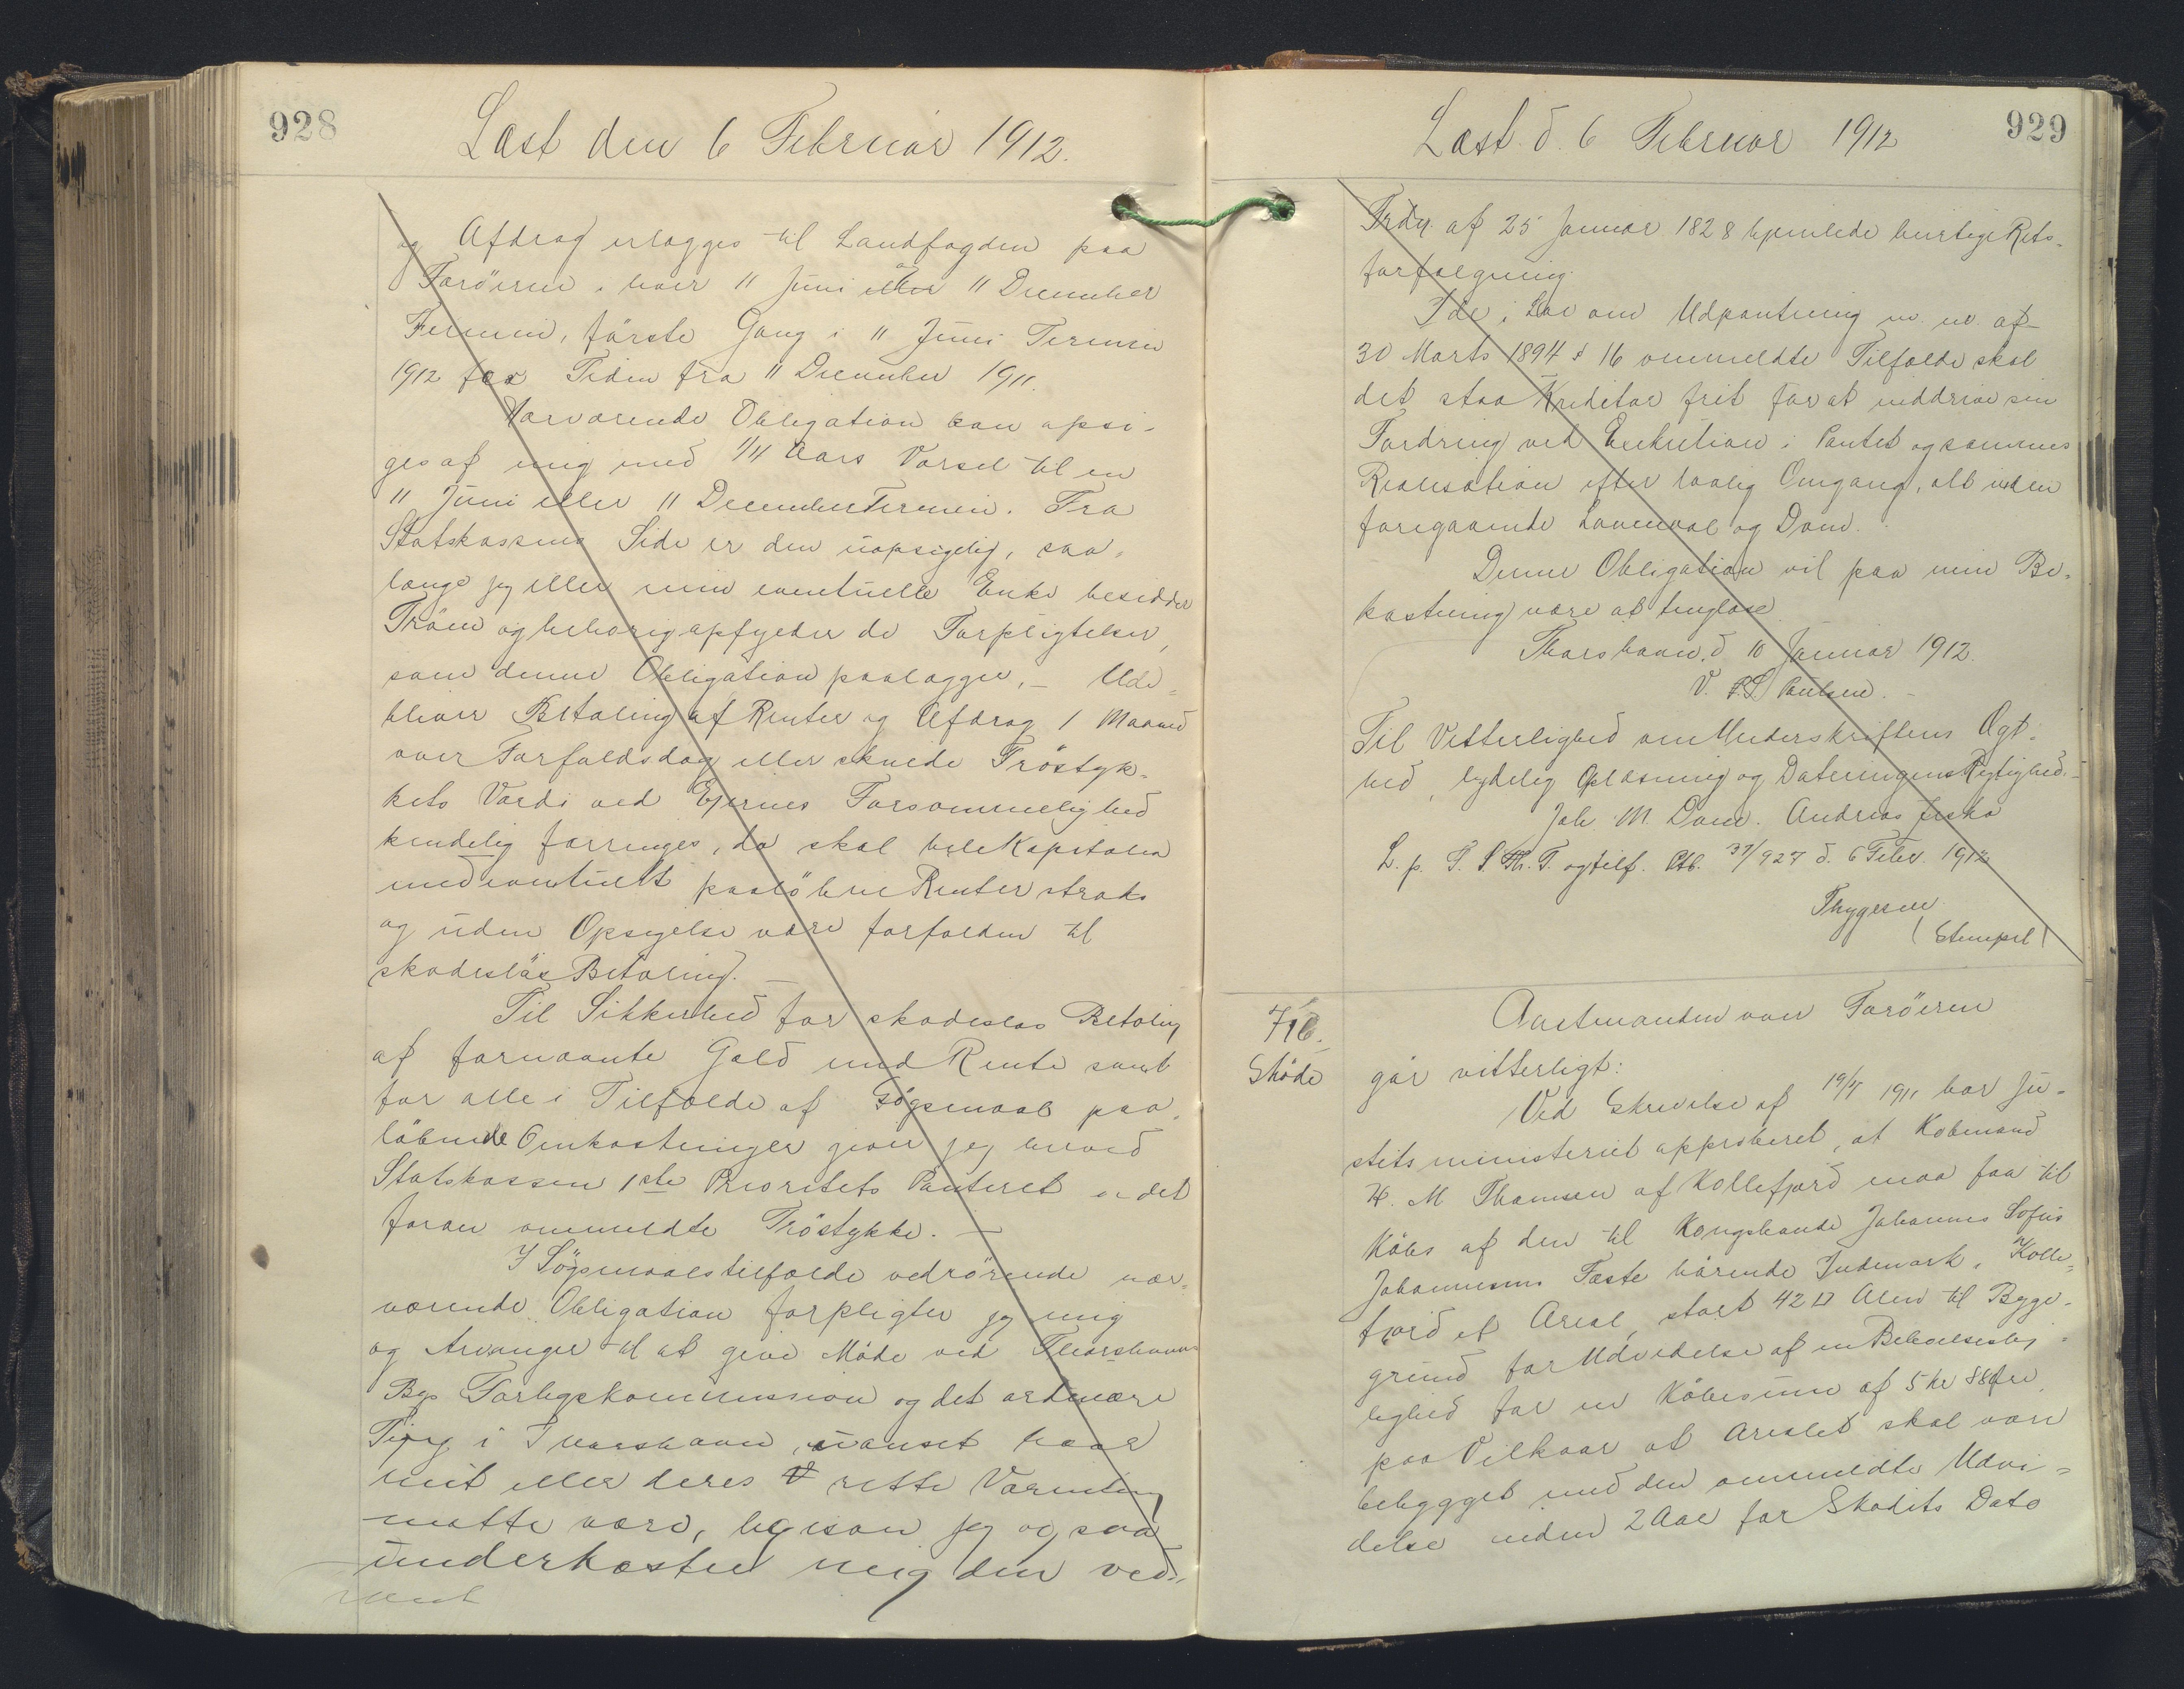 928
Læst den 6 Februar 1912.
og Afdrag erlægges til Landfogden paa
Færöerne i hver 11 Juni eller 11 December
Termin, förste Gang i 11 Juni Termin
1912 for Tiden fra 11 December 1911.
Nærværende Obligation kan opsi-
ges af mig med 1/4 Aars Varsel til en
11 Juni eller 11 December Termin. Fra
Statskassens Side er den uopsigelig, saa-
længe jeg eller min eventuelle Enke besidder
Tröen og behörig opfylder de Forpligtelser,
som denne Obligation paalægger, – Ude-
bliver Betaling af Renter og Afdrag 1 Maaned
over Forfaldsdag eller skulde Tröstyk-
kets Værdi ved Ejernes Forsömmelighed
kendelig forringes, da skal hele Kapitalen
med eventuelt paalöbne Renter straks
og uden Opsigelse være forfalden til
skadeslös Betaling. –
Til Sikkerhed for skadeslös Betaling
af fornævnte Gæld med Rente samt
for alle i Tilfælde af Sögsmaal paa-
löbende Omkostninger giver jeg herved
Statskassen 1ste Prioritets Panteret i det
foran ommeldte Tröstykke. –
I Sögsmaalstilfælde vedrörende nær-
værende Obligation forpligter jeg mig
og Arvinger til at give Möde ved Thorshavns
Bys Forligskommission og det ordinære
Ting i Thorshavn, uanset hvor
mit eller deres V rette Værneting
maatte være, ligesom jeg ogsaa
underkaster mig den ved
929
Læst d. 6 Februar 1912
Frdn. af 25 Januar 1828 hjemlede hurtige Rets-
forfølgning.
I de i Lov om Udpantning m. m. af
30 Marts 1894 § 16 ommeldte Tilfælde skal
det staa Kreditor frit for at inddrive sin
Fordring ved Exekution i Pantet og sammes
Realisation efter lovlig Omgang, alt uden
foregaaende Lovmaal og Dom.
Denne Obligation vil paa min Be-
kostning være at tinglæse.
Thorshavn, d 10 Januar 1912.
V. P.S Poulsen. –
Til Vitterlighed om Underskriftens Ægt-
hed, lydelig Oplæsning og Dateringens Rigtighed. –
Joh M. Dam. Andreas Joska
L. p. T. S. Th. T. og tilf. Ptb. 37/927 d. 6 Febr. 1912
Thygesen
(Stempel)
716.
Sköde
Amtmanden over Færöerne
gör vitterligt:
Ved Skrivelse af 19/4 1911 har Ju-
stitsministeriet approberet, at Købmand
H. M Thomsen af Kollefjord maa faa til
Købs af den til Kongsbonde Johannes Sofus
Johannesens Fæste hörende Indmark, Kolle-
fjord et Areal, stort 42 □ Alen til Bygge-
grund for Udvidelse af en Beboelseslej-
lighed for en Købesum af 5 kr 88 Øre
paa Vilkaar at Arealet skal være
bebygget med den ommeldte Udvi-
delse inden 2 Aar fra Skødets Dato